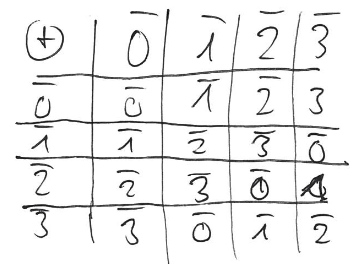 ⊕ 0̅ 1̅ 2̅ 3̅
0̅ 0̅ 1̅ 2̅ 3
1̅ 1̅ 2̅ 3̅ 0̅
2̅ 2̅ 3̅ 0̅
3̅ 3̅ 0̅ 1̅ 2̅